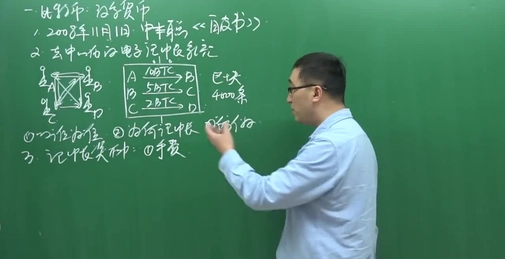 一.比特币:数字货币
1. 2008年11月1日 中本聪 《白皮书》
2. 去中心的电子记帐系统
A B C D
A 10BTC B
B 5BTC C
C 2BTC D
区块
4000条
① 以谁为准 ② 为何记帐 ③
3. 记帐奖励: ①手续费